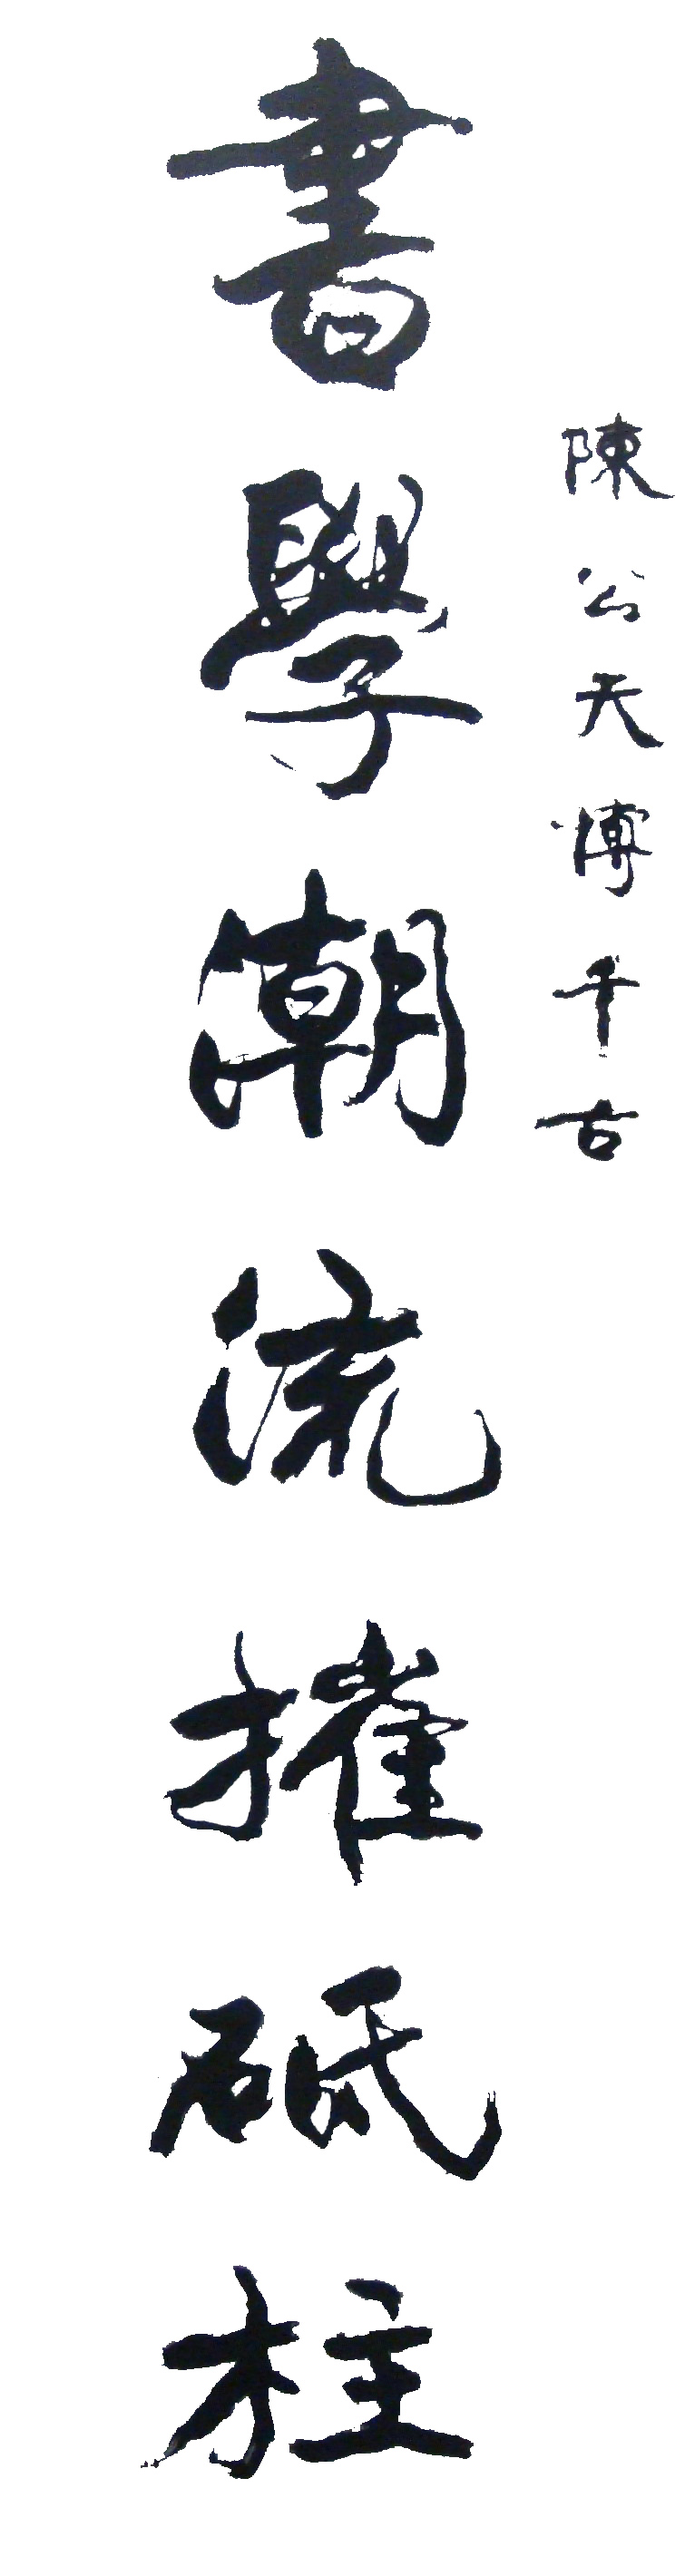 陳公天博千古
書學潮流摧砥柱